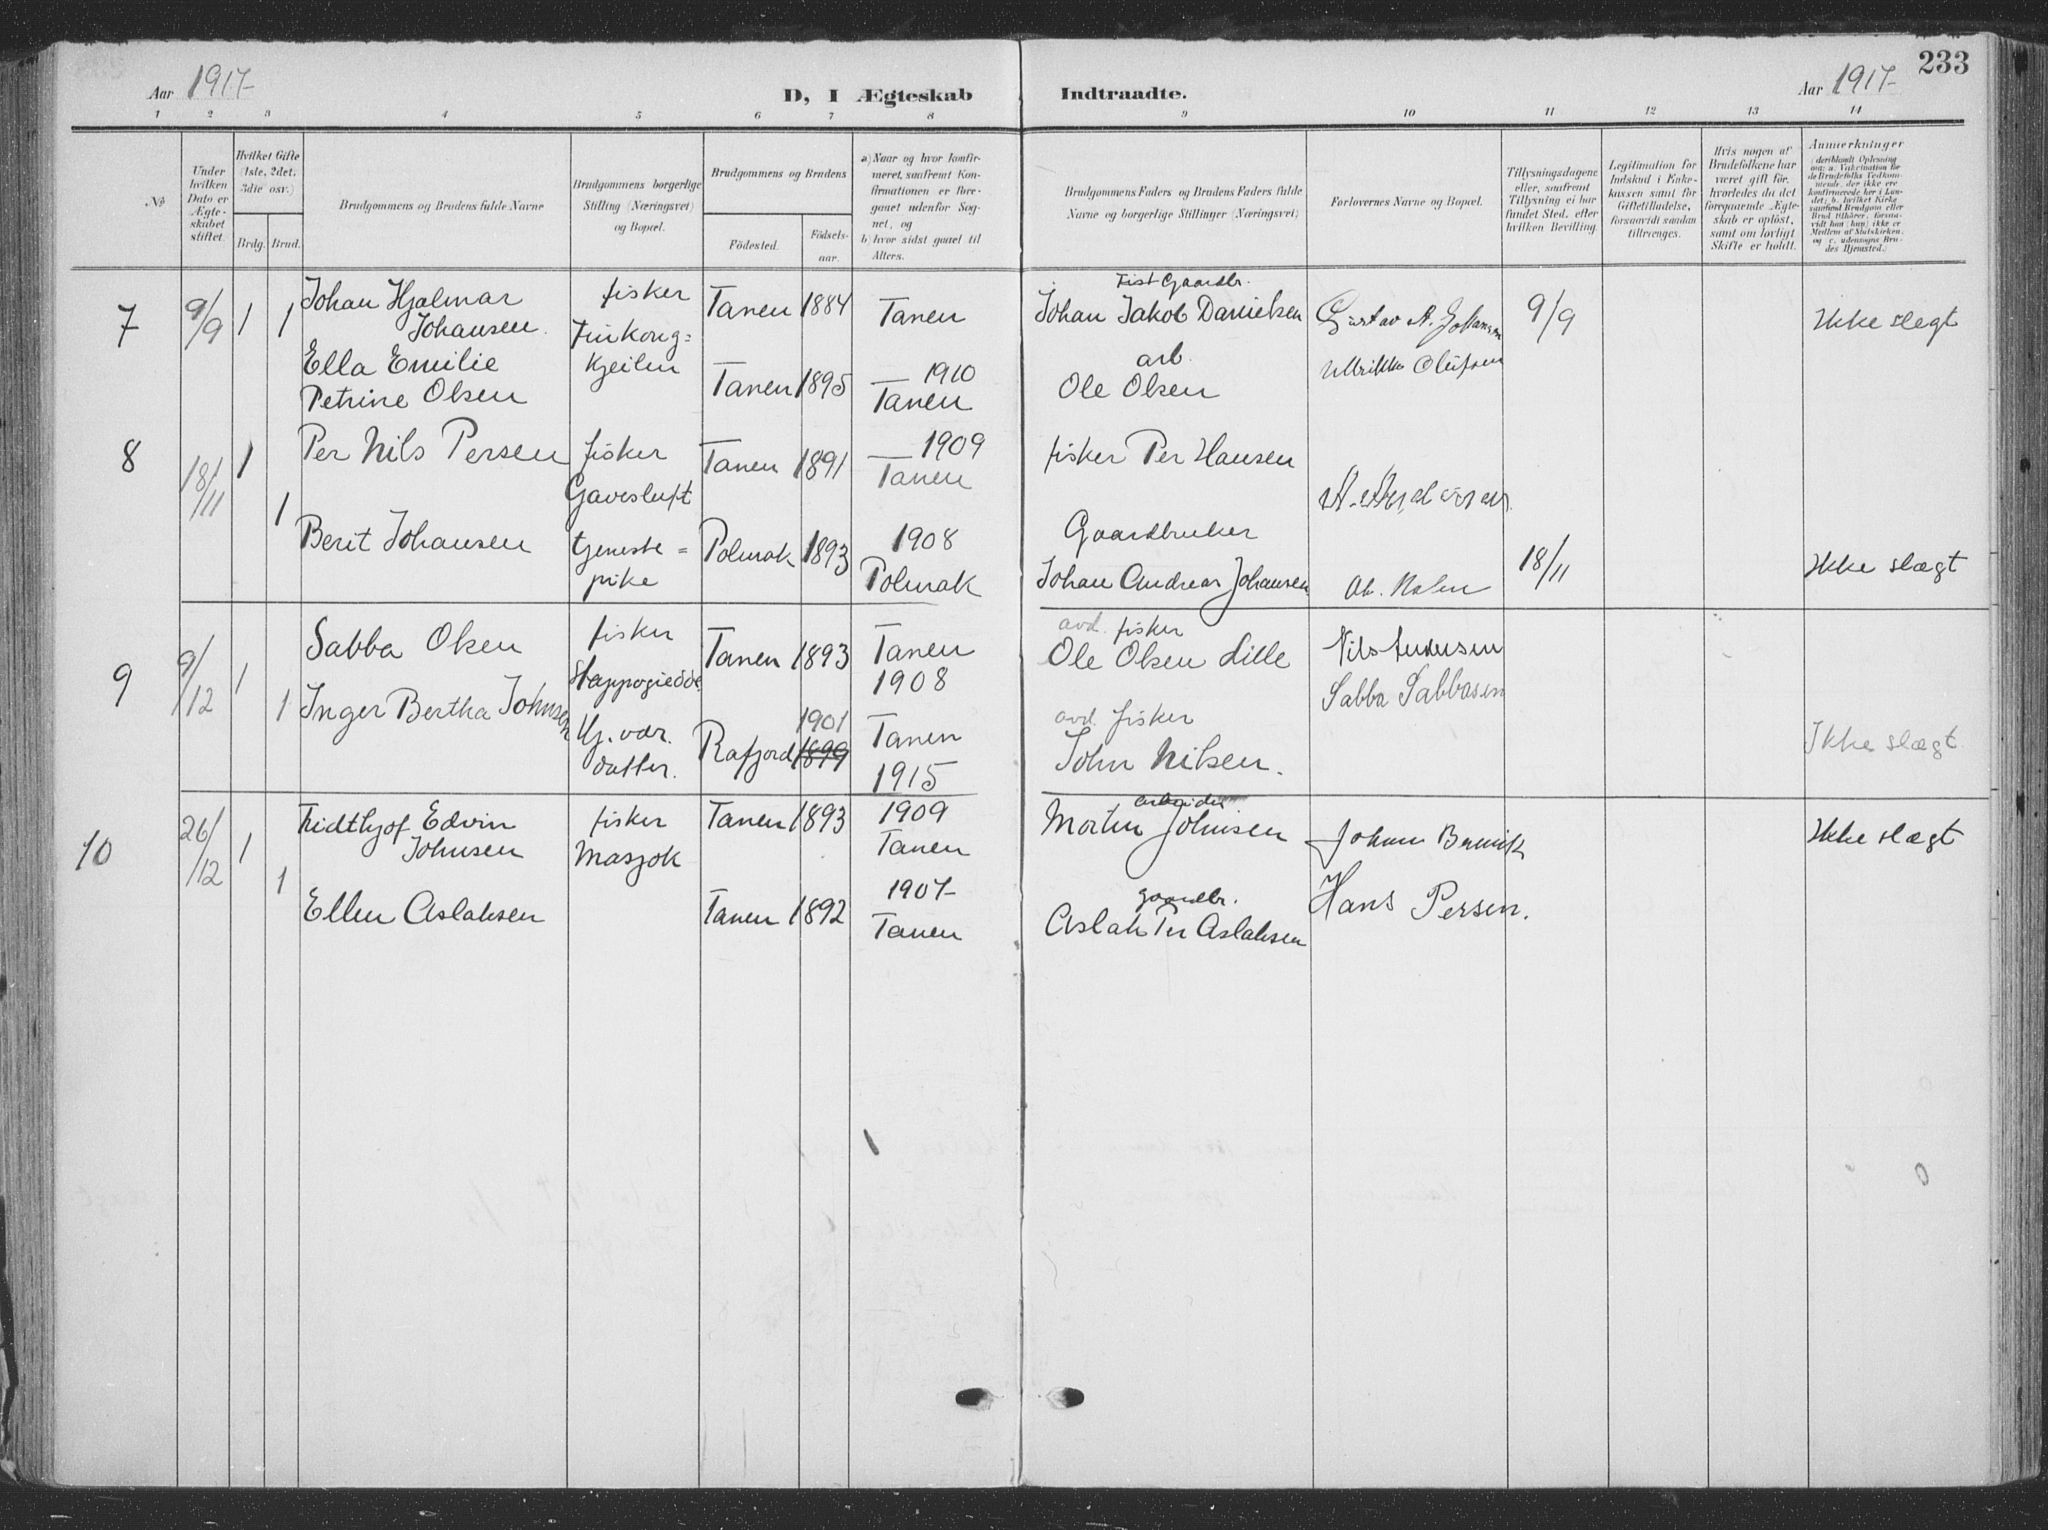 233
Aar 1917
D, I Ægteskab Indtraadte.
Aar 1917
1 2 3 4 5 6 7 8 9 10 11 12 13 14
No
Under hvilken Dato er Ægteskabet stiftet.
Hvilket Gifte (1ste, 2det, 3die osv.)
Brdg. Brud.
Brudgommens og Brudens fulde Navne
Brudgommens borgerlige Stilling (Næringsvei) og Bopæl.
Brudgommens og Brudens
Födested.
Födselsaar.
a) Naar og hvor konfirmeret, saafremt Konfirmationen er foregaaet udenfor Sognet, og
b) hvor sidst gaaet til Alters.
Brudgommens Faders og Brudens Faders fulde Navne og borgerlige Stillinger (Næringsvei)
Forlovernes Navne og Bopæl.
Tillysningsdagene eller, saafremt Tillysning ei har fundet Sted, efter hvilken Bevilling.
Legitimation for Indskud i Enkekassen samt for Giftetilladelse, forsaavidt saadan tiltrænges.
Hvis nogen af Brudefolkene har været gift för, hvorledes da det foregaaende Ægteskab er oplöst, samt om lovligt Skifte er holdt.
Anmerkninger
7 9/9 1 1
Johan Hjalmar
Johansen
Ella Emilie
Petrine Olsen
fisker
Finkong=
kjeilen
Tanen 1884 Tanen
Tanen 1895 1910
Tanen
Johan Jakob Danielsen
arb.
Ole Olsen
Gustav A. Johansen
Ulrikke Olufsen
9/9
Ikke slegt
8 18/11 1 1
Per Nils Persen
Berit Johansen
fisker
Gavesluft
tjeneste=
pike
Tanen 1891 1909
Tanen
Polmak 1893 1908
Polmak
fisker Per Hansen
Gaardbruker
Johan Andreas Johansen
18/11
Ikke slægt
9 9/12 1 1
Sabba Olsen
Inger Bertha Johnsen
fisker
datter.
Tanen 1893 Tanen
1908
Rafjord 1901
1899
Tanen
1915
avd. fisker
Ole Olsen Lille
avd. fisker
John Nilsen.
Nils Andersen
Sabba Sabbasen
Ikke slægt
10 26/12 1 1
Fridthjof Edvin
Johnsen
Ellen Aslaksen
fisker
Masjok
Tanen 1893 1909
Tanen
Tanen 1892 1907
Tanen
arbeider
Morten Johnsen
gaardbr.
Aslak Per Aslaksen
Hans Persen.
Ikke slægt